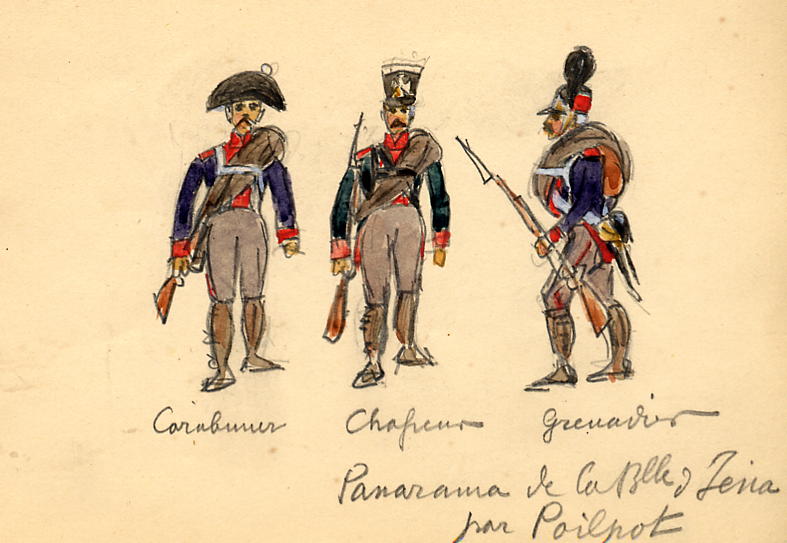 Carabinier Chasseur Grenadier
Panorama de la Blle d Jena
par Poilpot